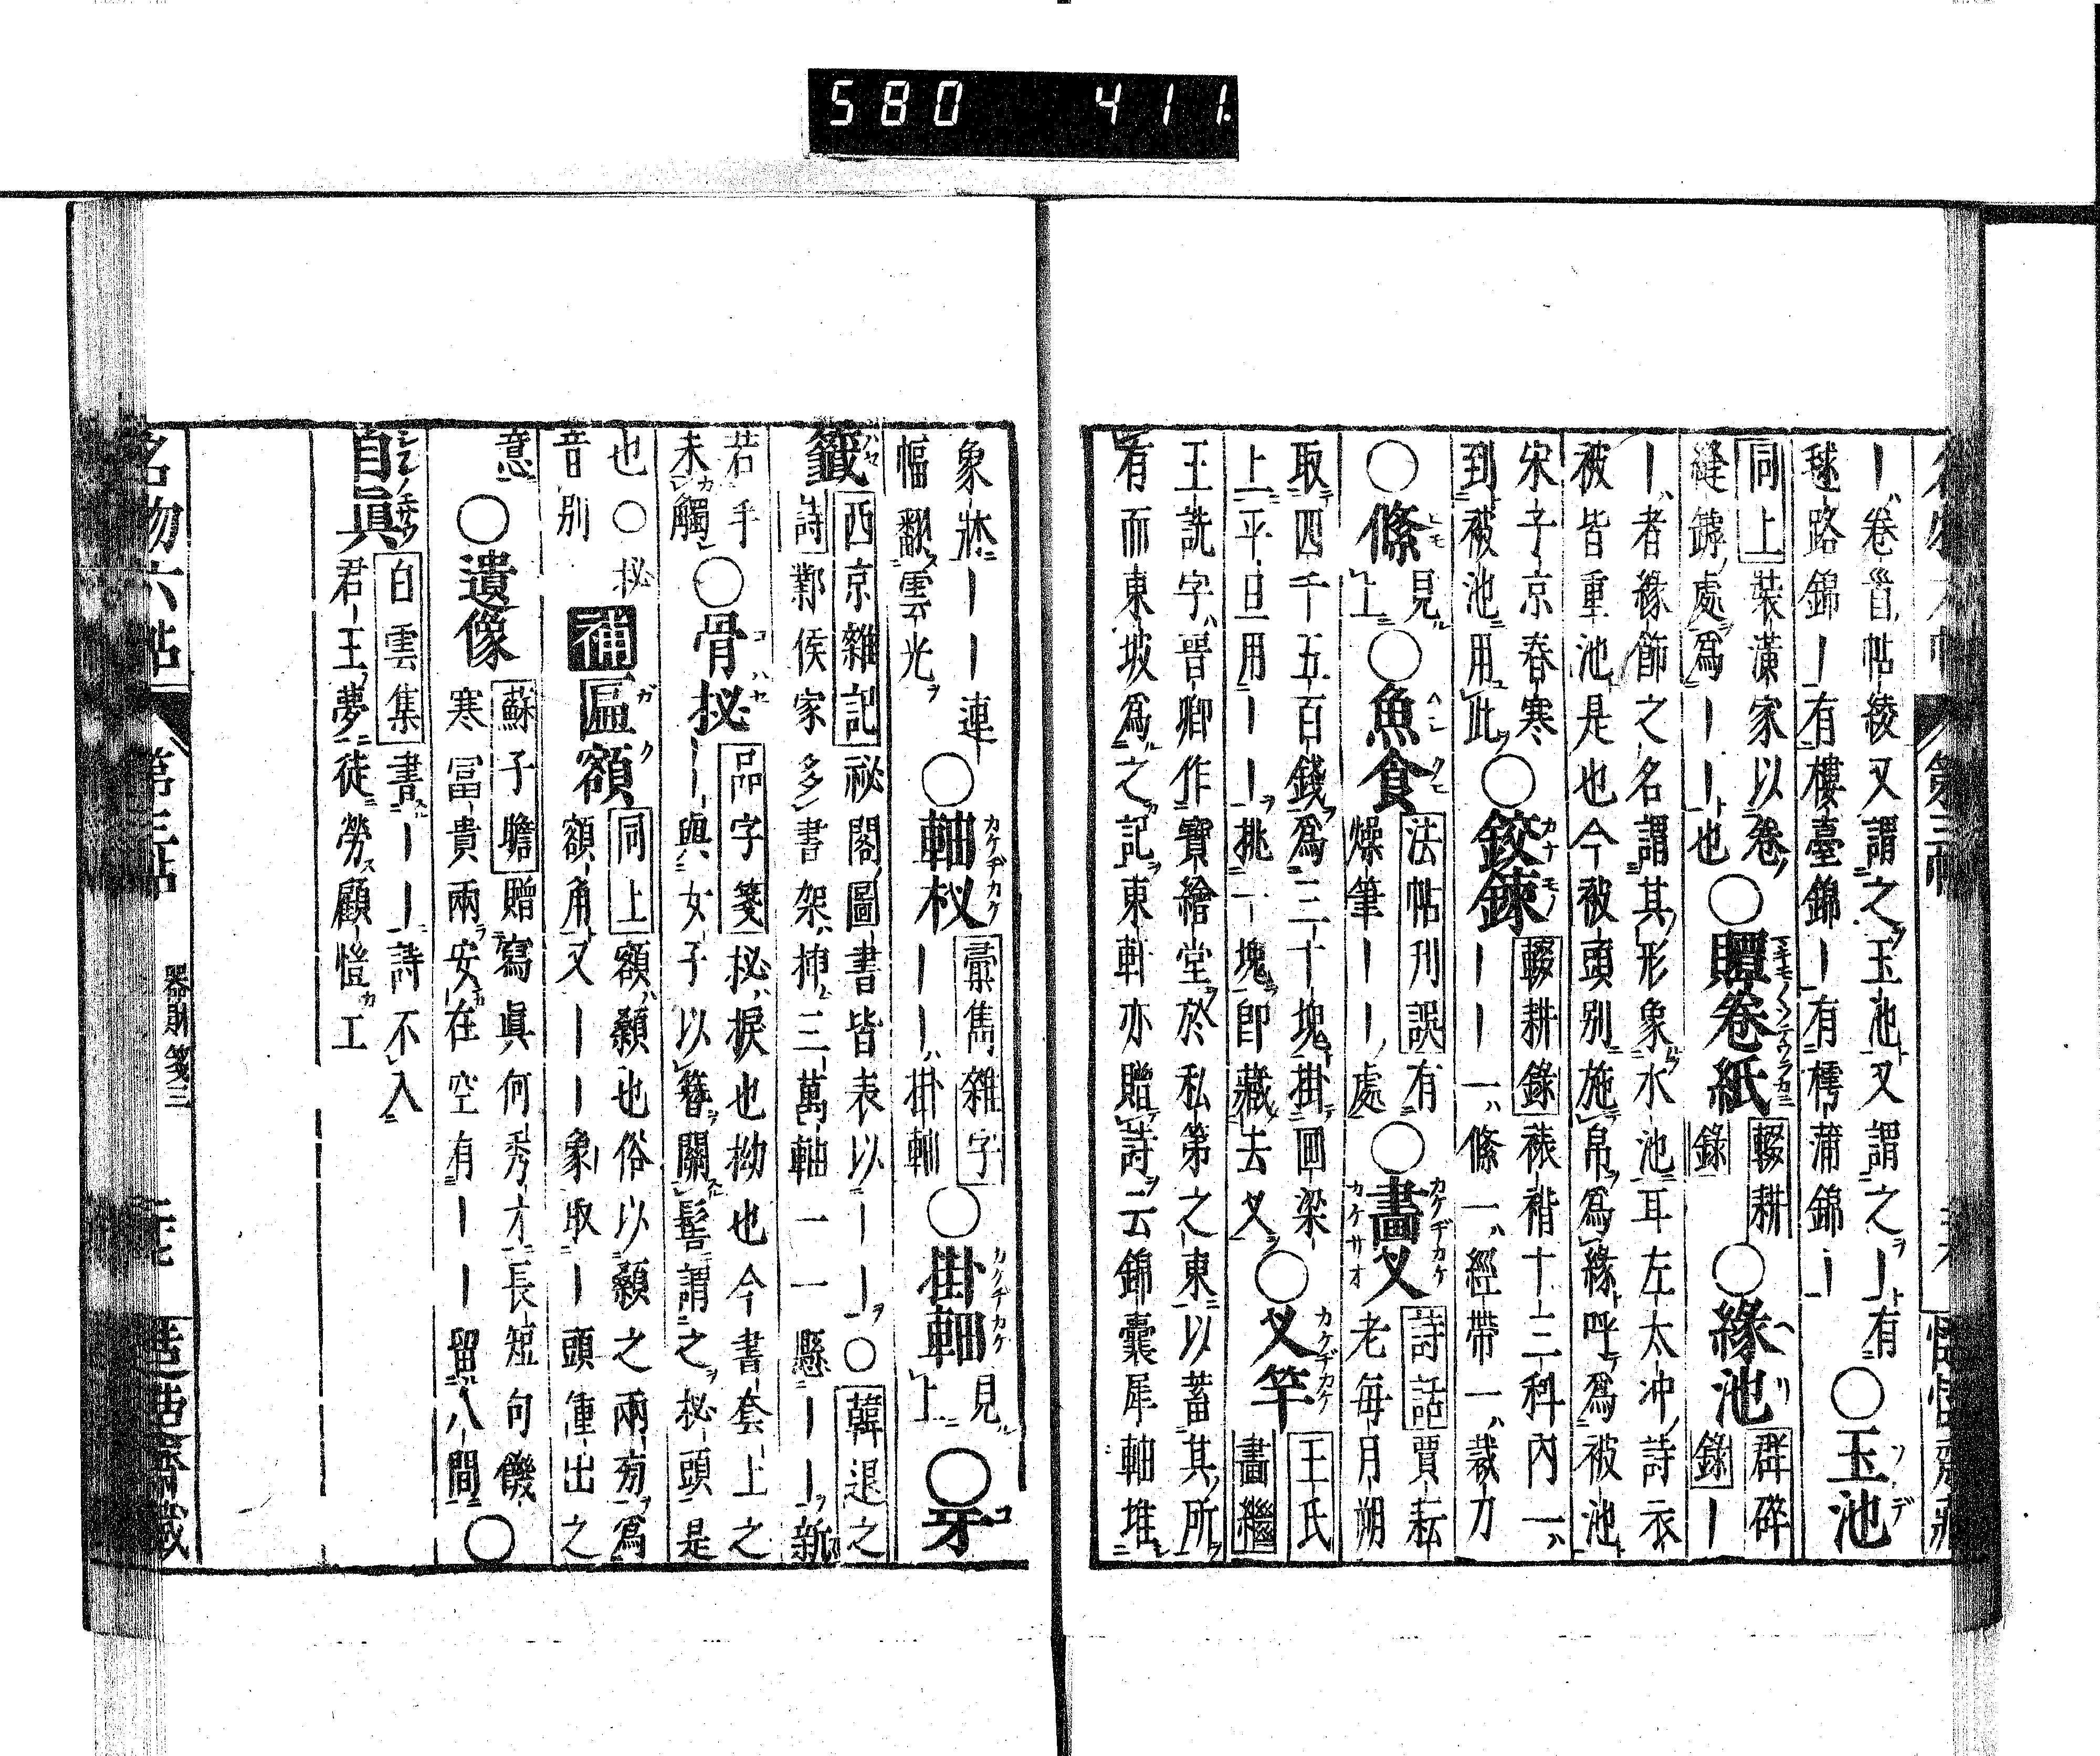 ｜卷首帖綾又謂之玉池又謂之｜有
毬路錦｜有樓臺錦｜有樗蒲錦｜
○玉池
同上裝潢家以卷
縫罅處爲｜｜也
○贉卷紙
輟耕
錄
○緣池
群碎
錄｜
｜者緣飾之名謂其形象水池耳左太冲詩衣
被皆重池是也今被頭別施帛爲緣呼爲被池
宋子京春寒
到被池用此
○鉸鍊
輟耕錄裱褙十三科內一
｜｜｜一條一經帶一裁刀
○絛
見
上
○魚食
法帖刊誤有
燥筆｜｜處
○畫叉
詩話賈耘
老每月朔
取四千五百錢爲三十塊掛画梁
上平旦用｜｜挑一塊卽藏去叉
○叉竿
王氏
畫繼
王詵字晉卿作寶繪堂於私第之東以蓄其所
有而東坡爲之記東軒亦贈詩云錦囊犀軸堆
象牀｜｜連
幅翻雲光
○軸杈
彙雋雜字
｜｜掛軸
○掛軸
見
上
○牙
籤
西京雜記祕閣圖書皆表以｜｜○韓退之
詩鄴侯家多書架揷三萬軸一一懸｜｜新
若手
未觸
○骨㧙
品字箋㧙捩也拗也今書套上之
｜與女子以簪關髻謂之㧙頭是
也○㧙
音別
補匾額
同上額顙也俗以顙之兩旁爲
額角又｜｜象取｜頭衝出之
意
○遺像
蘇子瞻贈寫眞何秀才長短句饑
寒冨貴兩安在空有｜｜留人間
○
自眞
白雲集書｜｜詩不入
君王夢徒勞顧愷工
名物六帖
第三帖
器財箋三
580 411